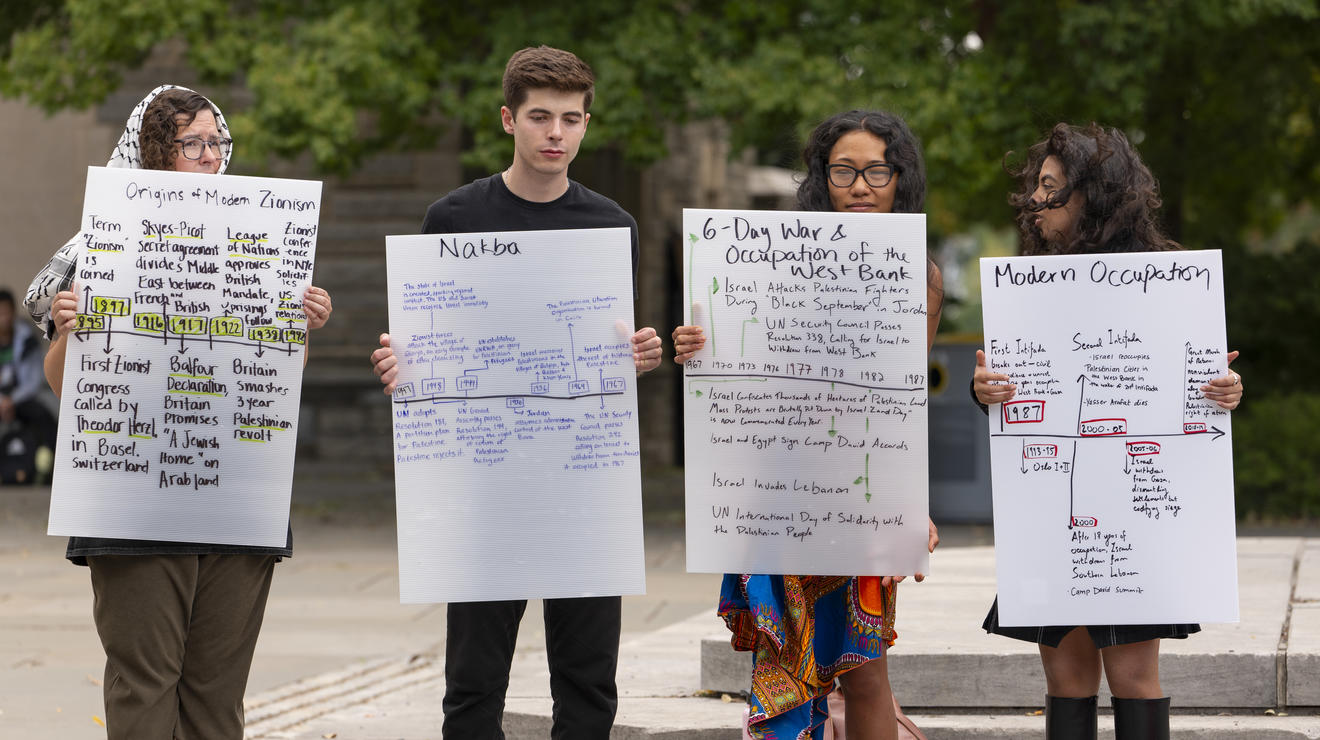 Origins of Modern Zionism
Term
"Zionism"
is
coined
Skyes-Picot
secret agreement
divides Middle
East between
French and
British
League
of Nations
approves
British
Mandate,
uprisings
follow
Zionist
confer
-ence
in NYC
solidif-
ies
US-
Zionist
relations
1897
1916
1917
1922
1938
First Zionist
Congress
called by
Theodor Herzl
in Basel,
Switzerland
Balfour
Declaration,
Britain
Promises
"A Jewish
Home" on
Arab land
Britain
smashes
3 year
Palestinian
revolt
Nakba
The state of Israel
is created, sparking regional
conflict. The US and Soviet
Union recognize Israel immediately
The Palestinian Liberation
Organization is formed
in Cairo
Zionist forces
attack the village of
1948
1949
1964
1967
UN adopts
Resolution 181,
a partition plan
for Palestine.
Palestine rejects it.
UN General
Assembly passes
Resolution 194,
affirming the right
of return of
Palestinian
Refugees
Jordan
assumes administrative
control of the West
Bank
The UN Security
Council passes
Resolution 242
calling on Israel to
withdraw from territories
it occupied in 1967
6-Day War &
Occupation of the
West Bank
Israel Attacks Palestinian Fighters
During "Black September" in Jordan
UN Security Council Passes
Resolution 338, Calling for Israel to
Withdraw from West Bank
1967 1970 1973 1976 1977 1978 1982 1987
Israel Confiscates Thousands of Hectares of Palestinian Land
Mass Protests are Brutally Put Down by Israel "Land Day"
is now Commemorated Every Year.
Israel and Egypt Sign Camp David Accords
Israel Invades Lebanon
UN International Day of Solidarity with
the Palestinian People
Modern Occupation
First Intifada
breaks out - civil
West Bank + Gaza
1987
Second Intifada
- Israel reoccupies
Palestinian Cities in
the West Bank in
the wake of 2nd Intifada
- Yasser Arafat dies
2000-05
Great March of
Return,
nonviolent
Palestinian
right of return
Oslo I + II
2005-06
Israel
withdraws
from Gaza,
dismantling
settlements but
codifying siege
2000
After 18 years of
occupation, Israel
withdrew from
Southern Lebanon
- Camp David Summit